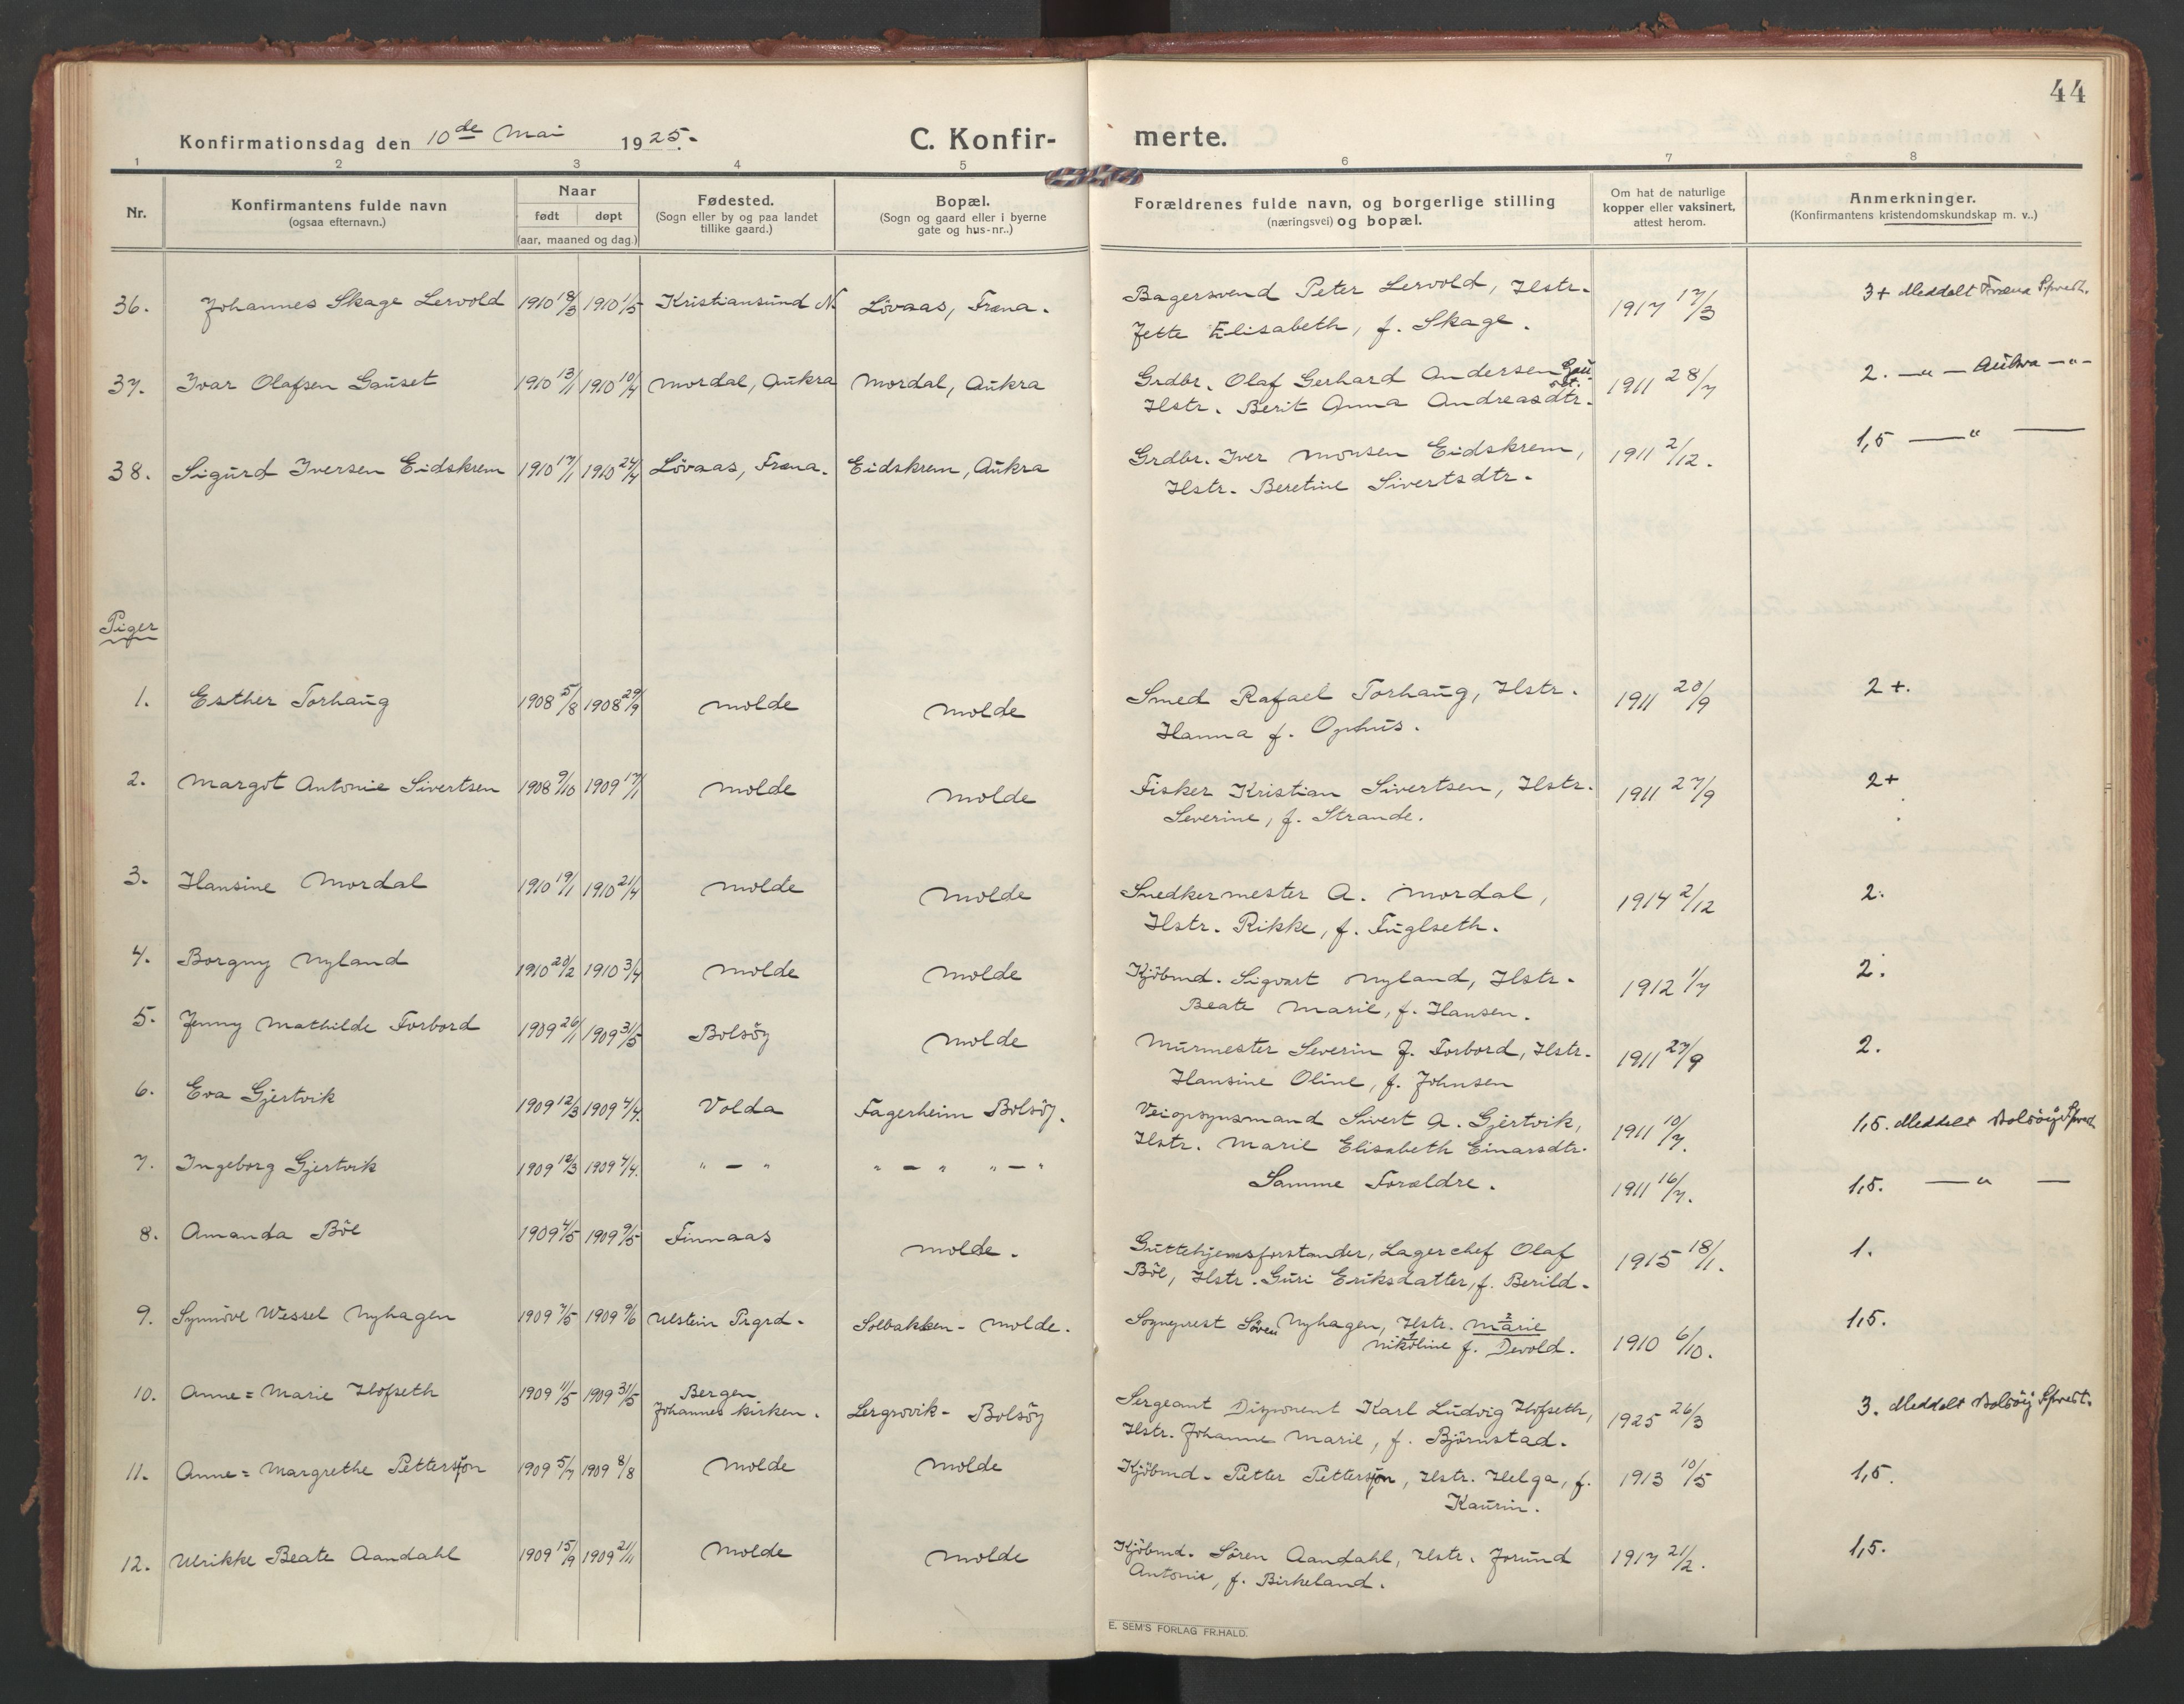 44
Konfirmationsdag den 10de Mai 1925.-
C. Konfir- merte.
1 2 3 4 5 6 7 8
Nr.
Konfirmantens fulde navn
(ogsaa efternavn.)
Naar
født døpt
(aar, maaned og dag.)
Fødested.
(Sogn eller by og paa landet
tillike gaard.)
Bopæl.
(Sogn og gaard eller i byerne
gate og hus-nr..)
Forældrenes fulde navn, og borgerlige stilling
(næringsvei) og bopæl.
Om hat de naturlige
kopper eller vaksinert,
attest herom.
Anmerkninger.
(Konfirmantens kristendomskundskap m. v..)
36. Johannes Skage Lervold 1910 18/3 1910 1/5 Kristiansund N. Lövaas, Fræna. Bagersvend Peter Lervold, Hstr. 1917 17/3 3+ Meddelt Fræna Sprest.
Jette Elisabeth, f. Skage.
37. Ivar Olafsen Gauset 1910 13/1 1910 10/4 Mordal, Aukra Mordal, Aukra Grdbr. Olaf Gerhard Andersen Gau- 1911 28/7 2. —"— Aukra —"—
set.
Hstr. Berit Anna Andreasdtr.
38. Sigurd Iversen Eidskrem 1910 17/1 1910 24/4 Lövaas, Fræna. Eidskrem, Aukra Grdbr. Iver Monsen Eidskrem, 1911 2/12. 1,5 —"—
Hstr. Beretine Sivertsdtr.
Piger
1. Esther Torhaug 1908 5/8 1908 29/9 Molde Molde Smed Rafael Torhaug, Hstr. 1911 20/9 2+.
Hanna f. Ophus.
2. Margot Antonie Sivertsen 1908 9/10 1909 17/1 Molde Molde Fisker Kristian Sivertsen, Hstr. 1911 27/9 2+
Severine, f. Strande.
3. Hansine Mordal 1910 19/1 1910 21/4 Molde Molde Snedkermester A. Mordal, 1914 2/12 2.
Hstr. Rikke, f. Fuglseth.
4. Borgny Nyland 1910 20/2 1910 3/4 Molde Molde Kjöbmd. Sigvart Nyland, Hstr. 1912 1/7 2.
Beate Marie, f. Hansen.
5. Jenny Mathilde Forbord 1909 26/1 1909 31/5 Bolsöy Molde Murmester Severin J. Forbord, Hstr. 1911 27/9 2.
Hansine Oline, f. Johnsen
6. Eva Gjertvik 1909 12/3 1909 4/4. Volda Fagerheim Bolsöy. Veiopsynsmand Sivert A. Gjertvik, 1911 10/7. 1,5. Meddelt Bolsöy Sprest
Hstr. Marie Elisabeth Einarsdtr.
7. Ingeborg Gjertvik 1909 12/3 1909 4/4. " – " " – " " – " Samme Forældre. 1911 16/7. 1,5. —"—
8. Amanda Böe 1909 4/5 1909 9/5 Finnaas Molde. Guttehjemsforstander, Lagerchef Olaf 1915 18/1. 1.
Böe, Hstr. Guri Eriksdatter, f. Berild.
9. Synnöve Wessel Nyhagen 1909 7/5 1909 9/6 Ulstein Prgrd. Solbakken - Molde. Sogneprest Sören Nyhagen, Hstr. Marie 2 1910 6/10. 1,5.
Nikoline 1 f. Devold.
10. Anne=Marie Hofseth 1909 11/5 1909 31/5 Bergen Lergrovik - Bolsöy Sergeant Disponent Karl Ludvig Hofseth, 1925 26/3 3. Meddelt Bolsöy Sprest.
Johannes kirken. Hstr. Johanne Marie, f. Björnstad.
11. Anne=Margrethe Pettersson 1909 5/7 1909 8/8 Molde Molde Kjöbmd. Petter Pettersson, Hstr. Helga, f. 1913 10/5 1,5.
Kaurin.
12. Ulrikke Beate Aandahl 1909 15/9 1909 21/11 Molde Molde Kjöbmd. Sören Aandahl, Hstr. Jorund 1917 21/2. 1,5.
Antonie, f. Birkeland.
E. SEM'S FORLAG FR.HALD.